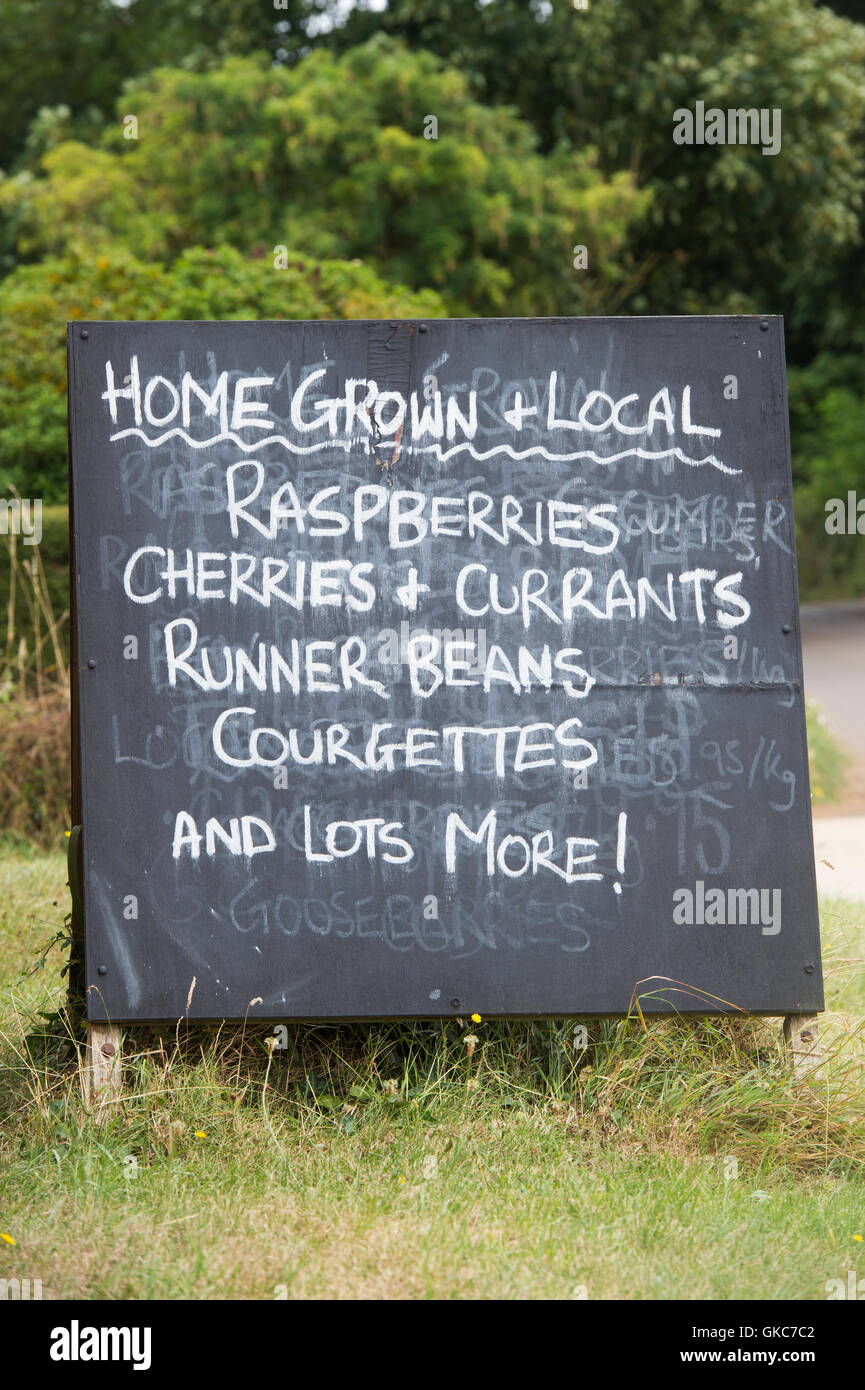 HOME GROWN + LOCAL
RASPBERRIES
CHERRIES + CURRANTS
RUNNER BEANS
COURGETTES
AND LOTS MORE!
GOOSEBERRIES
alamy
Image ID: GKC7C2
www.alamy.com